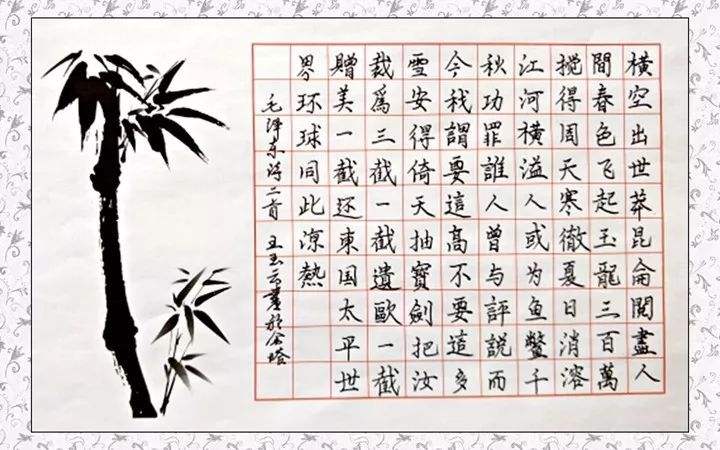 橫空出世莽昆侖閱盡人
間春色飞起玉龍三百萬
搅得周天寒徹夏日消溶
江河橫溢人或为鱼鳖千
秋功罪誰人曾与評説而
今我謂要這高不要這多
雪安得倚天抽寶劍把汝
裁爲三截一截遺歐一截
贈美一截还東国太平世
界环球同此凉熱
毛泽东诗二首 王玉云書於金塔